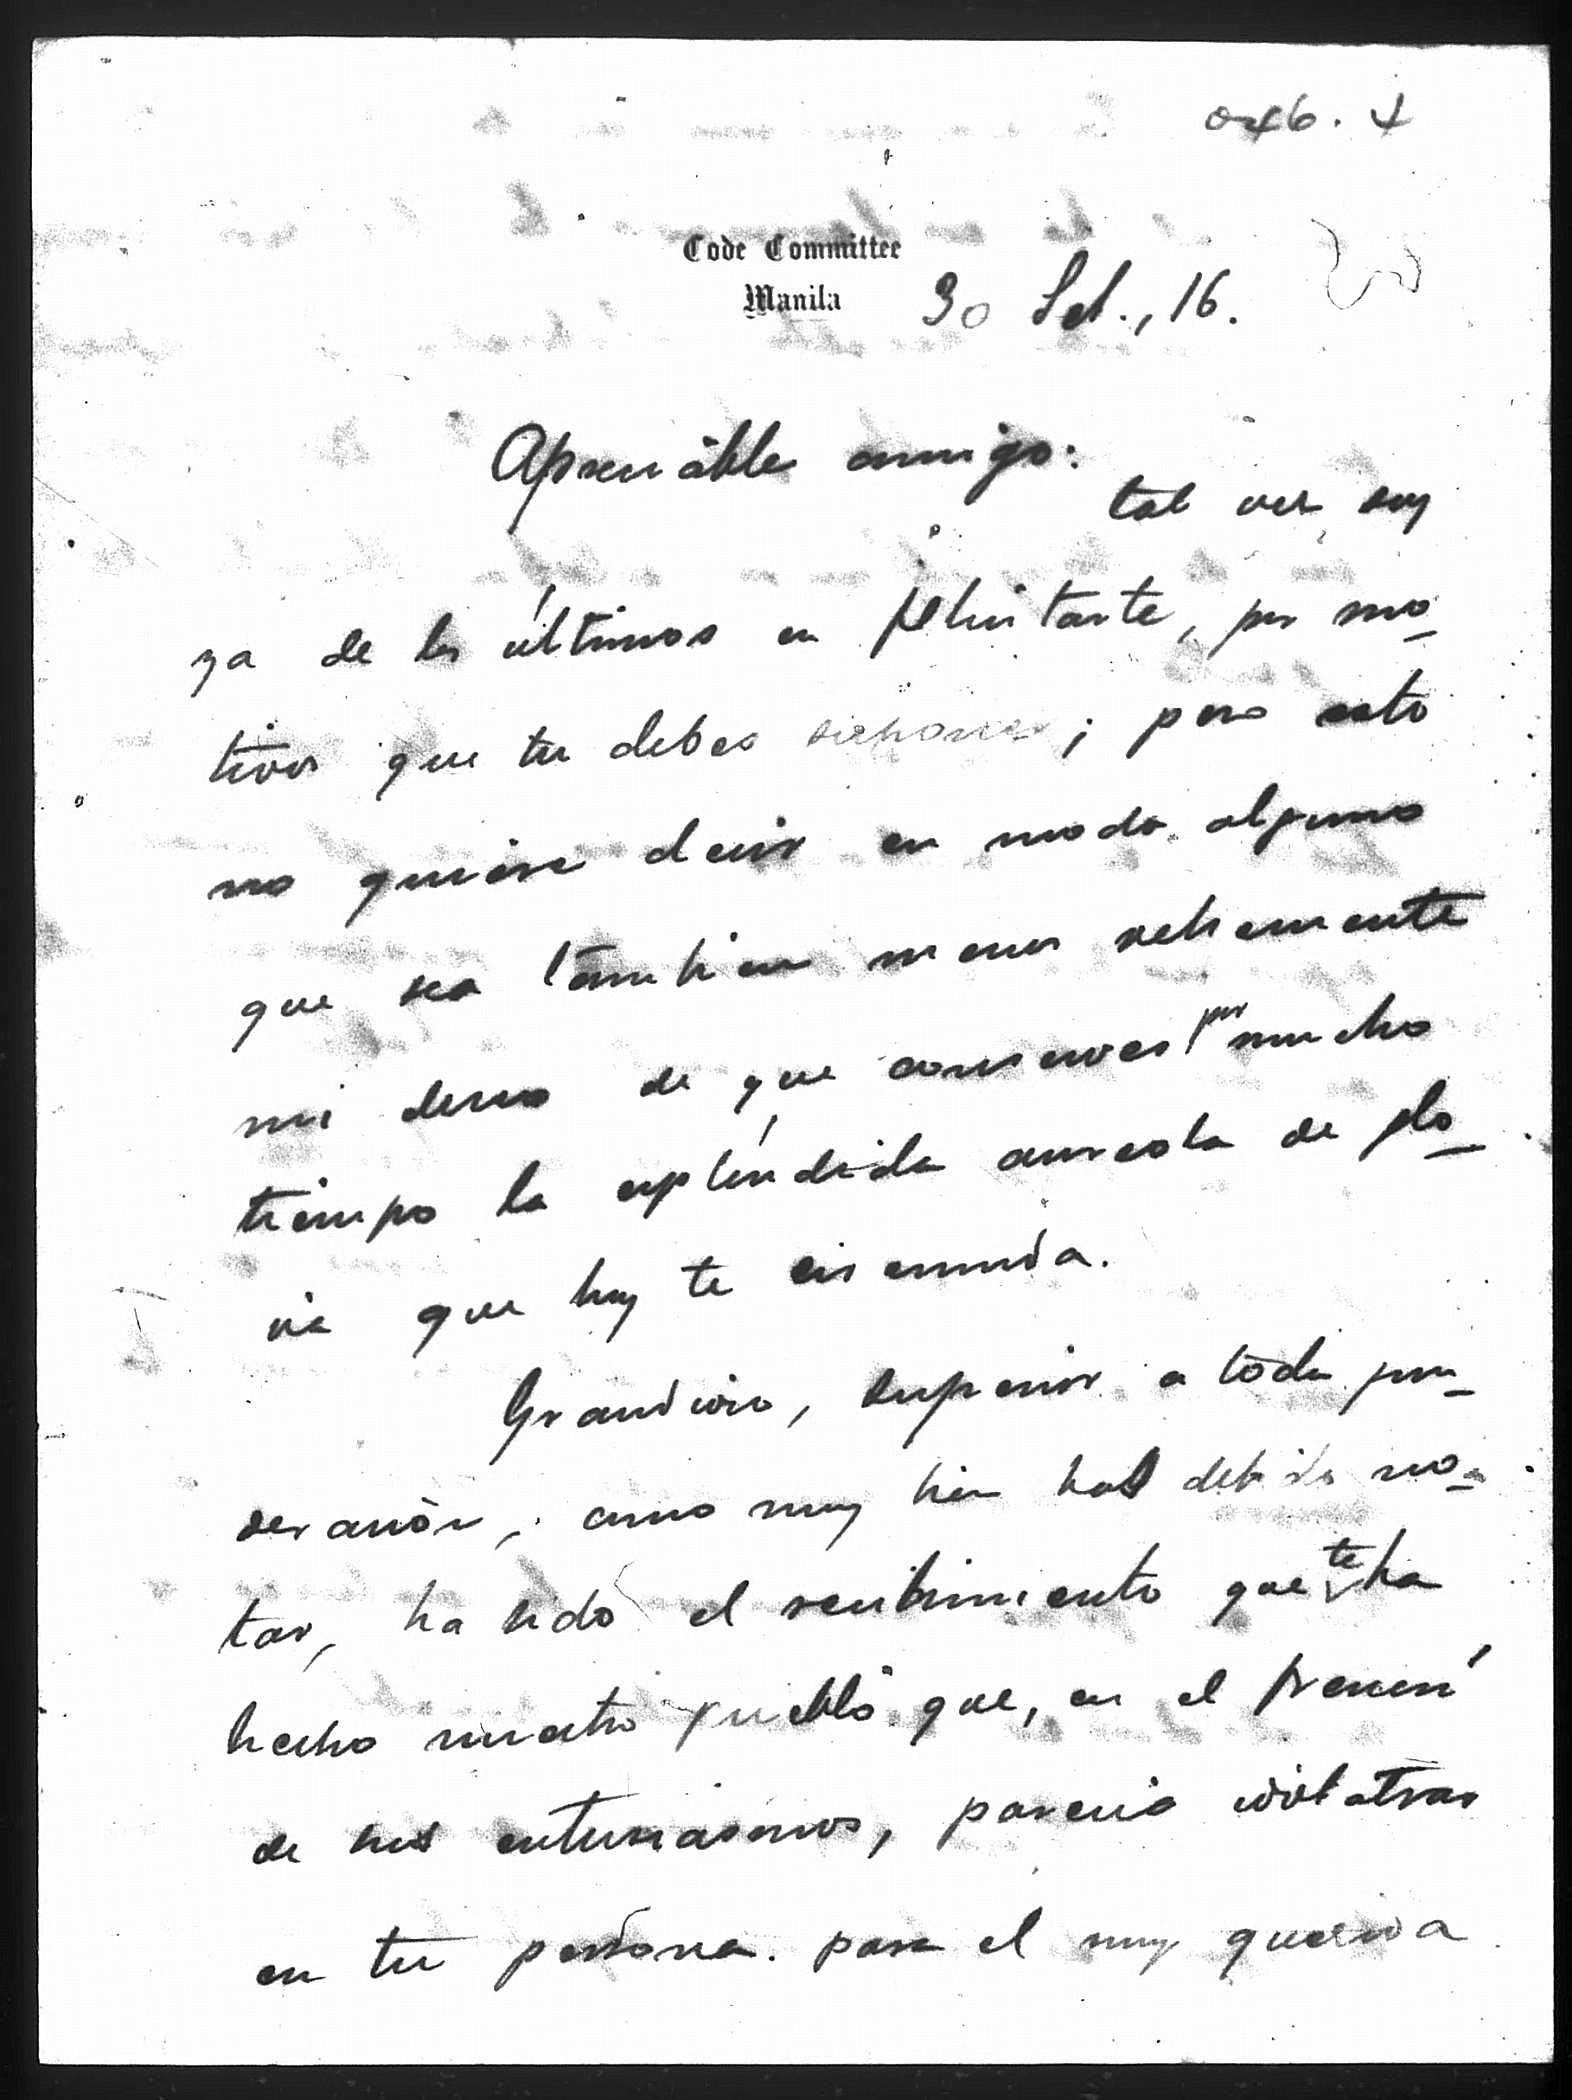 Code Committee
Manila
30 Set., 16.
Apreciable amigo:
tal vez soy
ya de los últimos en felicitarte, por mo-
tivos que tu debes suponer; pero esto
no quiere decir en modo alguno
que sea también menos vehemente
mi deseo de que conserves por mucho
tiempo la espléndida aureola de glo-
ria que hoy te circunda.
Grandioso, superior a toda pon-
deración, como muy bien has debido no-
tar, ha sido el recibimiento que te ha
hecho nuestro pueblo que, en el frenesí
de sus entusiasmos, parecía idolatrar
en tu persona. para el muy querida